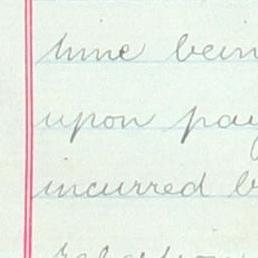 time bein
upon pay
incurred b